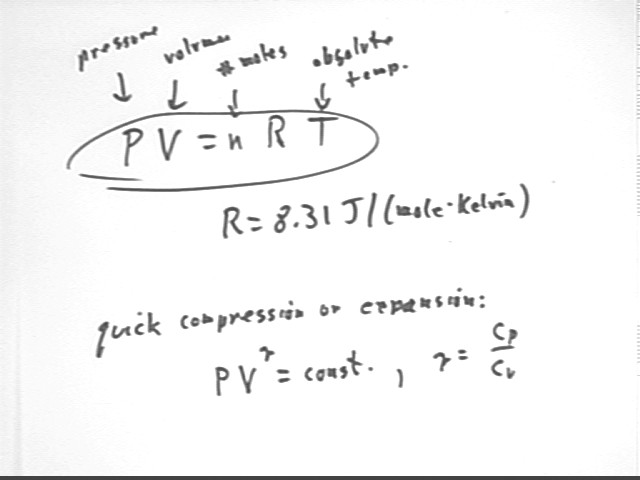 pressure volume # moles absolute temp.
PV = n R T
R = 8.31 J/(mole·Kelvin)
quick compression or expansion:
PV^γ = const. , γ = Cp/Cv